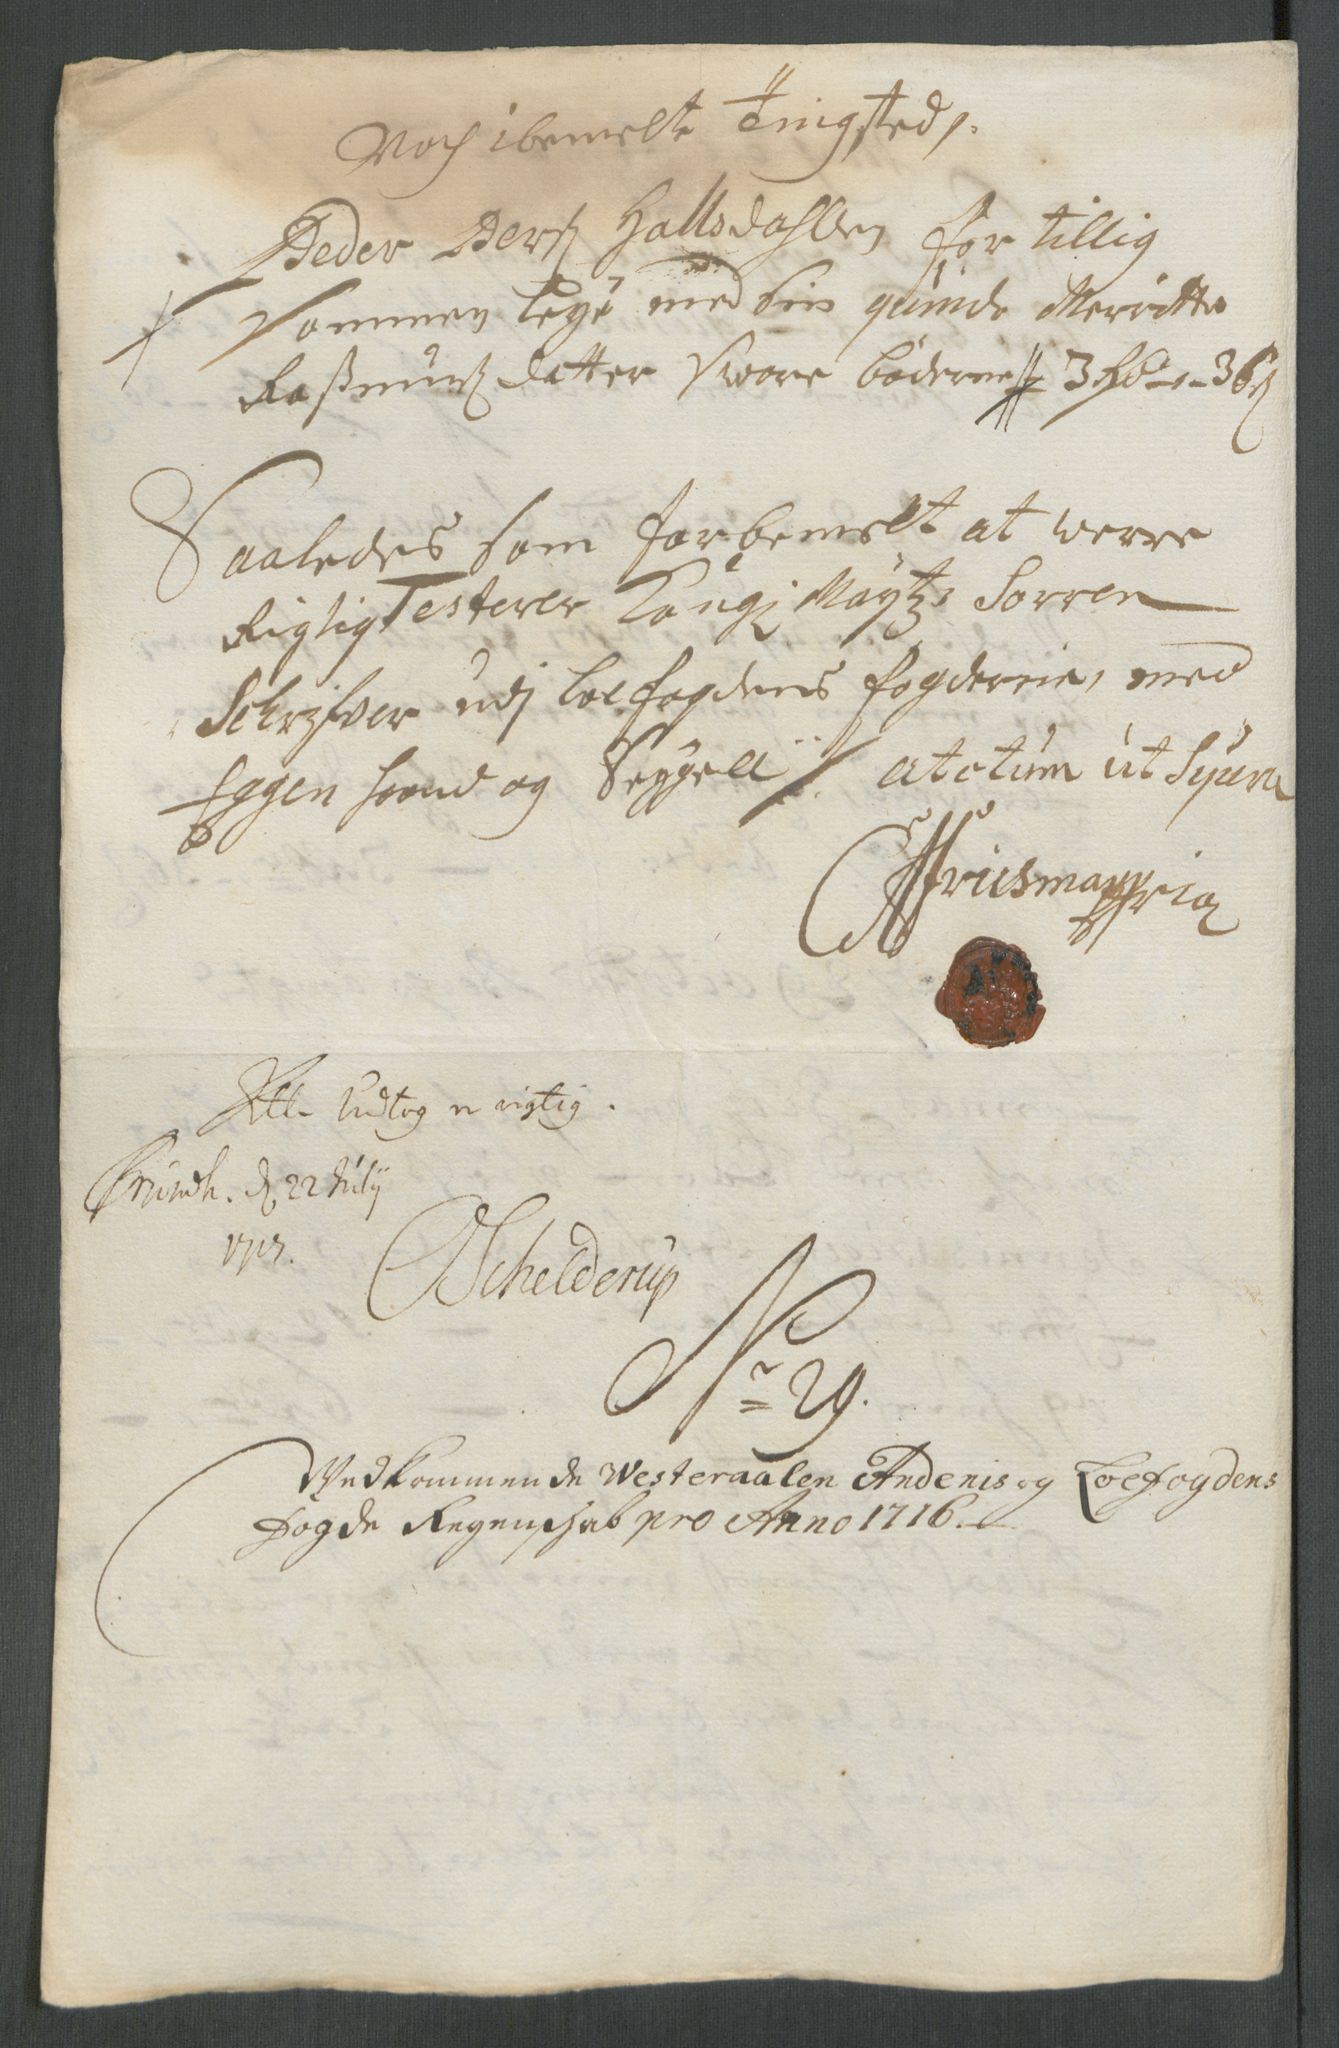 Noch ibemelte Tingsted,
Peder Pers: Hallsdahlen for tillig
Sammen leye med sin qúinde Merritte
Rasmus datter Svore bøderne 3 Rdr - 36 s
Saaledes som forbemelt at werre
Rigtig Testerer Kongl Mayts Sorren
Schrifver udj Loefogdens fogderie, med
Eggen haand og Seygell / Actum ut Supra
Friismand mpria
Dette Udtog er rigtig.
Trundh. d. 22 Julij
1717.
Schelderup
Nr 29.
Wedkommende Westeraalen Andenis og Loefogdens
fogde Regenschab pro Anno 1716.